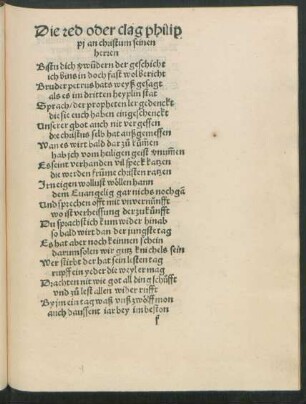 Die red oder clag philip
pj an christum seinen
herren
Bistu dich ꝫwůdern der geschicht
ich bins in doch fast wol bericht
Bruder petrus hats weyß gesagt
als es im dritten heyplin stat
Sprach/ der propheten ler gedenckt
die sie euch haben eingeschenckt
Unserer gbot auch nit vergessen
die christus selb hat außgemessen
Wan es wirt bald dar zů kūmen
hab jch vom heiligen geist vnūmen
Es seint verhanden vil speck katzen
die werden frūme christen ratzen
Ir neigen wollust wöllen hann
dem Euangelig gar nichs nochgā
Und sprechen offt mit vnvernūfft
wo ist verheissung der zukūnfft
Du sprachst ich kum wider hinab
so bald wirt dan der jungste tag
Es hat aber noch keinnen schein
darum solen wir gūtz ků ichels sein
Wer stirbt der hat sein lesten tag
rupff ein yeder die weyl er mag
Drachten nit wie got all ding schüfft
vnd zů lest allen wider rufft
By jm ein tag waß vnß zwölff mon
auch daussent iar bey im beston